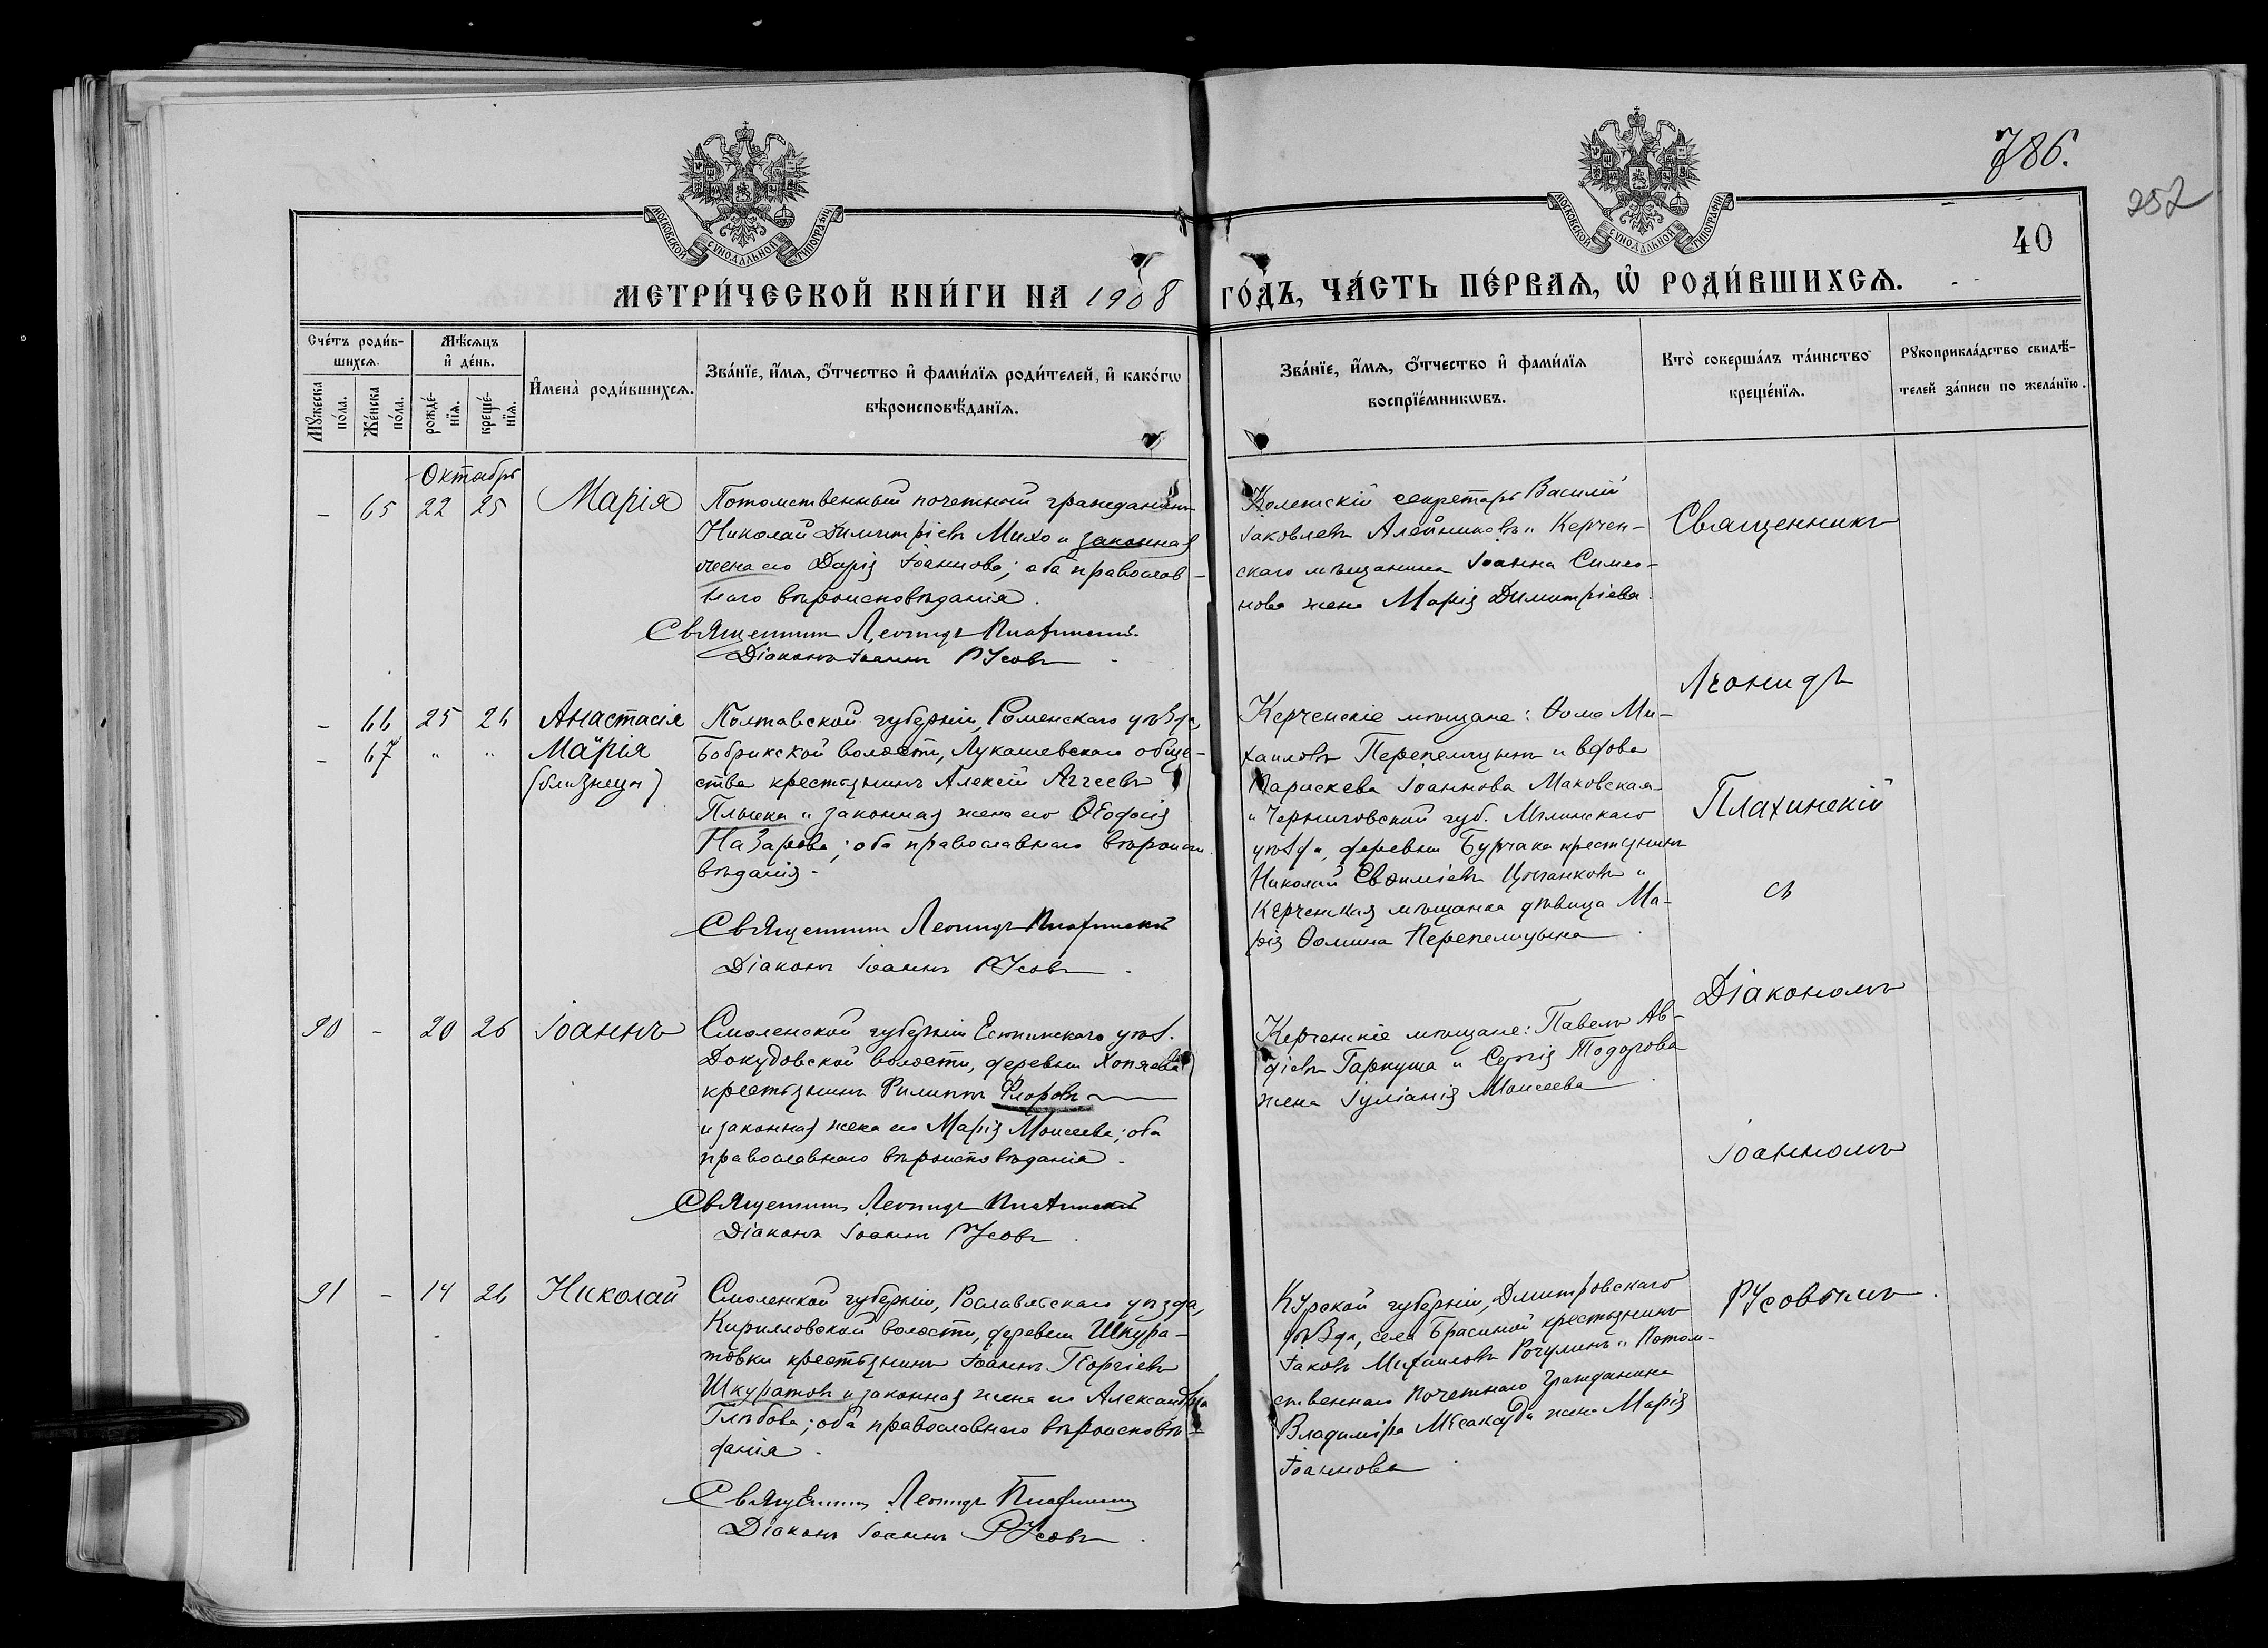 786.
252
40
МОСКОВСКОЙ СѴНОДАЛЬНОЙ ТИПОГРАФІИ
МОСКОВСКОЙ СѴНОДАЛЬНОЙ ТИПОГРАФІИ
МЕТРИ́ЧЕСКОЙ КНИ́ГИ НА 1908 ГО́ДЪ, ЧА́СТЬ ПЕ́РВАѦ, Ѡ РОДИ́ВШИХСѦ.
Сче́тъ роди́в-
шихсѧ.
Мѣ́сѧцъ
и҆ де́нь.
Мꙋ́жеска
по́ла.
Же́нска
по́ла.
рожде́-
нїѧ.
креще́-
нїѧ.
И҆мена̀ роди́вшихсѧ.
Зва́нїе, и҆́мѧ, ѻ҆́тчество и҆ фами́лїѧ роди́телей, и҆ како́гѡ
вѣроисповѣ́данїѧ.
Зва́нїе, и҆́мѧ, ѻ҆́тчество и҆ фами́лїѧ
воспрїе́мникѡвъ.
Кто̀ соверша́лъ та́инство
креще́нїѧ.
Рꙋкоприкла́дство свидѣ́-
телей за́писи по жела́нїю.
Октябрь
– 65 22 25 Марія
Потомственный почетный гражданинъ
Николай Димитріевъ Михо и законная
жена его Дарія Іоаннова; оба православ-
наго вѣроисповѣданія.
Священникъ Леонидъ Плахинскій.
Діаконъ Іоаннъ Русовъ
Колежскій секретарь Василій
Іаковлевъ Алейниковъ и Керчен-
скаго мѣщанина Іоанна Симео-
нова жена Марія Димитріева.
– 66 25 26 Анастасія
– 67 " " Марія
(близнецы)
Полтавской губерніи, Роменскаго уѣзда,
Бобрикской волости, Лукашевскаго обще-
ства крестьянинъ Алексій Аггеевъ
Плыска и законная жена его Ѳеодосія
Назарова; оба православнаго вѣроиспо-
вѣданія.
Священникъ Леонидъ Плахинскій
Діаконъ Іоаннъ Русовъ
Керченскіе мѣщане: Ѳома Ми-
хаиловъ Перепелицынъ и вдова
Параскева Іоаннова Маковская
и Черниговской губ. Мглинскаго
уѣзда, деревни Бурчака крестьянинъ
Николай Евѳиміевъ и
Керченская мѣщанка дѣвица Ма-
рія Ѳомина Перепелицына
90 – 20 26 Іоаннъ
Смоленской губерніи уѣз.
Докудовской волости, деревни
крестьянинъ Филиппъ Флоровъ
и законная жена его Марія Моисеева; оба
православнаго вѣроисповѣданія.
Священникъ Леонидъ Плахинскій
Діаконъ Іоаннъ Русовъ
Керченскіе мѣщане: Павелъ Ав-
діевъ Гаркуша и Сергія Тодорова
жена Іуліанія Моисеева
91 – 14 26 Николай
Смоленской губерніи, Рославльскаго уѣзда,
Кирилловской волости, деревни Шкура-
товки крестьянинъ Іоаннъ Георгіевъ
Шкуратовъ и законная жена его Александра
Глѣбова; оба православнаго вѣроисповѣ-
данія.
Священникъ Леонидъ Плахинскій
Діаконъ Іоаннъ Русовъ
Курской губерніи, Дмитровскаго
уѣзда, села крестьянинъ
Іаковъ Михаиловъ Рогулинъ и Потом-
ственнаго Почетнаго Гражданина
Владиміра Месаксуди жена Марія
Іоаннова
Священникъ
Леонидъ
Плахинскій
съ
Діакономъ
Іоанномъ
Русовымъ.